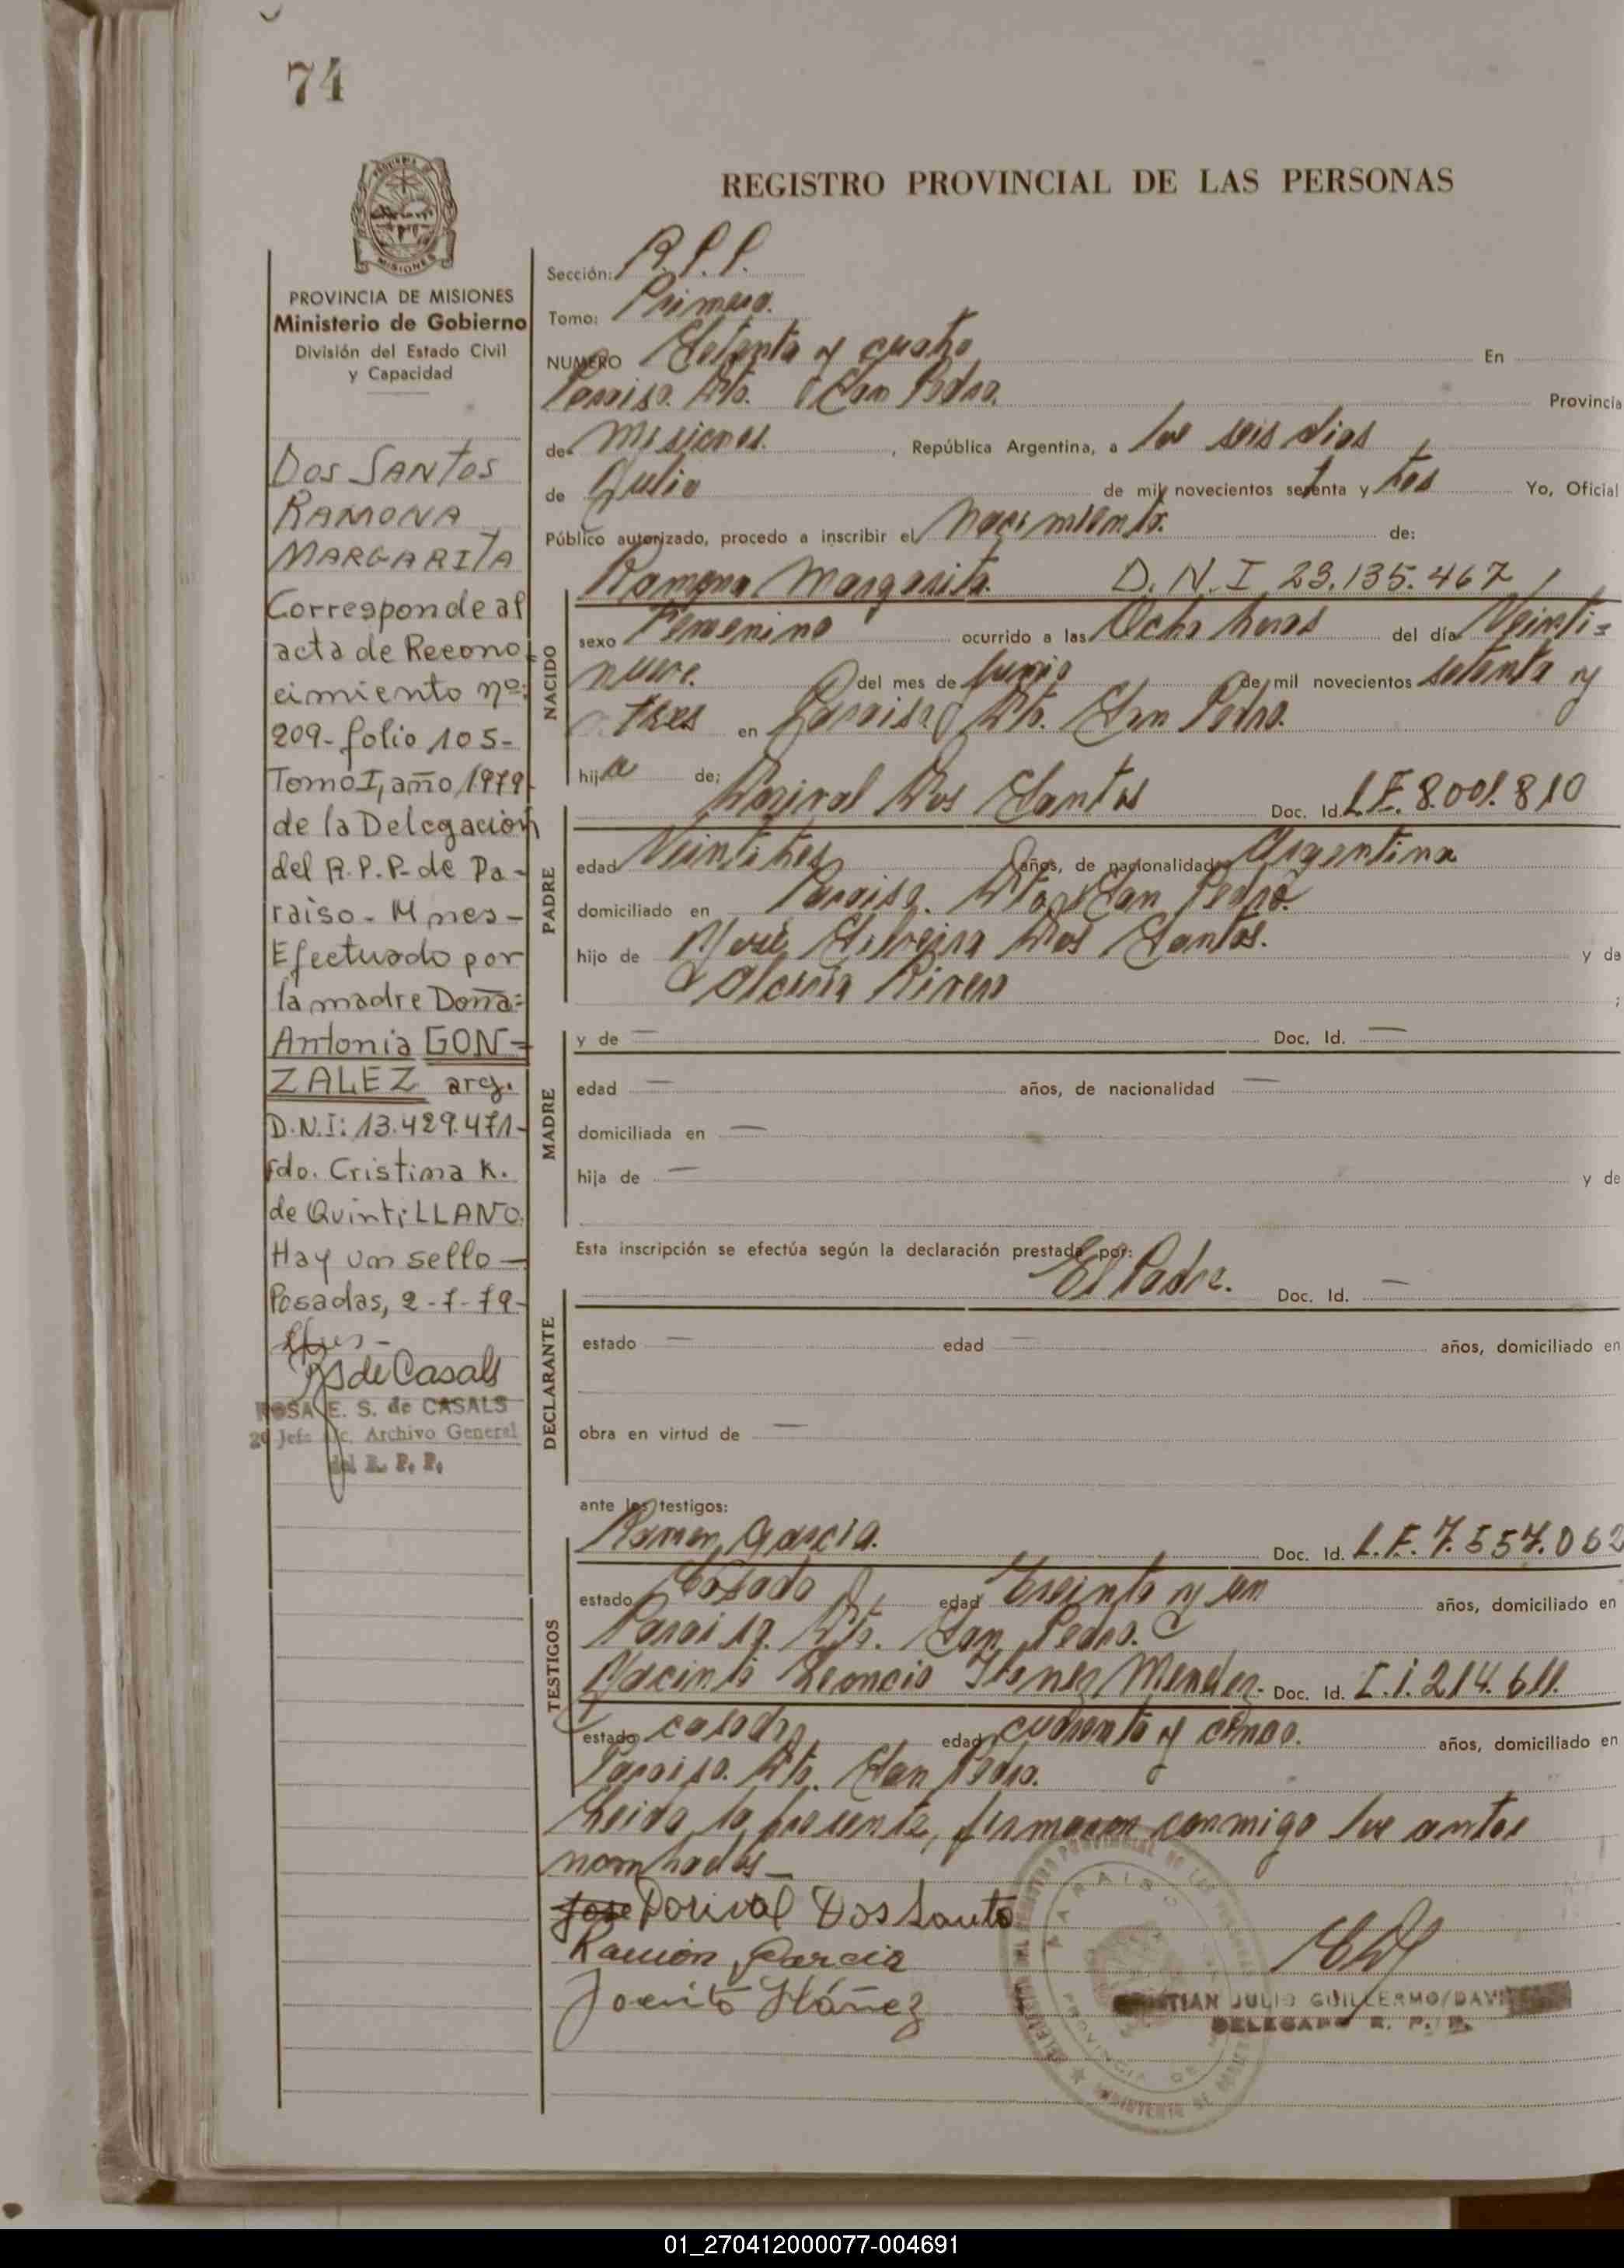 74
REGISTRO PROVINCIAL DE LAS PERSONAS
MISIONES
PROVINCIA DE MISIONES
Ministerio de Gobierno
División del Estado Civil
y Capacidad
DOS SANTOS
RAMONA
MARGARITA
Corresponde al
acta de Recono
cimiento nº:
209- folio 105-
Tomo I, año 1979
de la Delegación
del R.P.P. de Pa-
raiso - Mnes -
Efectuado por
la madre Doña:
Antonia GON-
ZALEZ arg.
D.N.I: 13.429.471-
fdo. Cristina K.
de QuintiLLANO.
Hay un sello —
Posadas, 2-7-79-
RS de Casals
ROSA E. S. de CASALS
2º Jefe Archivo General
del R. P. P.
Sección: R.P.P.
Tomo: Primero.
NUMERO Setenta y cuatro En
Paraiso. Dto. San Pedro. Provincia
de Misiones. , República Argentina, a los seis dias
de Julio de mil novecientos setenta y tres Yo, Oficial
Público autorizado, procedo a inscribir el Nacimiento. de:
NACIDO
Ramona Margarita. D.N.I 23.135.467
sexo Femenino ocurrido a las Ocho horas del día Veinti=
nueve. del mes de Junio de mil novecientos setenta y
tres en Paraiso Dto. San Pedro.
hija de; Dorival Dos Santos Doc. Id. L.E. 8.001.810
PADRE
edad Veintitres años, de nacionalidad Argentina
domiciliado en Paraiso. Dto. San Pedro.
hijo de José Silveira Dos Santos. y da
;
MADRE
y de — Doc. Id. —
edad — años, de nacionalidad —
domiciliada en —
hija de — y de
Esta inscripción se efectúa según la declaración prestada por:
El Padre. Doc. Id. —
DECLARANTE
estado — edad — años, domiciliado en
obra en virtud de —
ante los testigos:
TESTIGOS
Ramon Garcia. Doc. Id. L.E. 7.557.062
estado Casado edad Treinta y un años, domiciliado en
Paraiso. Dto. San Pedro.
Jacinto Leoncio Ibanez Mendez. Doc. Id. C.I. 214.611.
estado casado edad cuarenta y cinco. años, domiciliado en
Paraiso. Dto. San Pedro.
Leida la presente, firmaron conmigo los antes
nombrados —
Jose Dorival Dos Santo
Ramón Garcia
Jacinto Ibáñez
PARAISO
TIAN JULIO GUILLERMO DAVI
DELEGADO R. P. P.
01_270412000077-004691